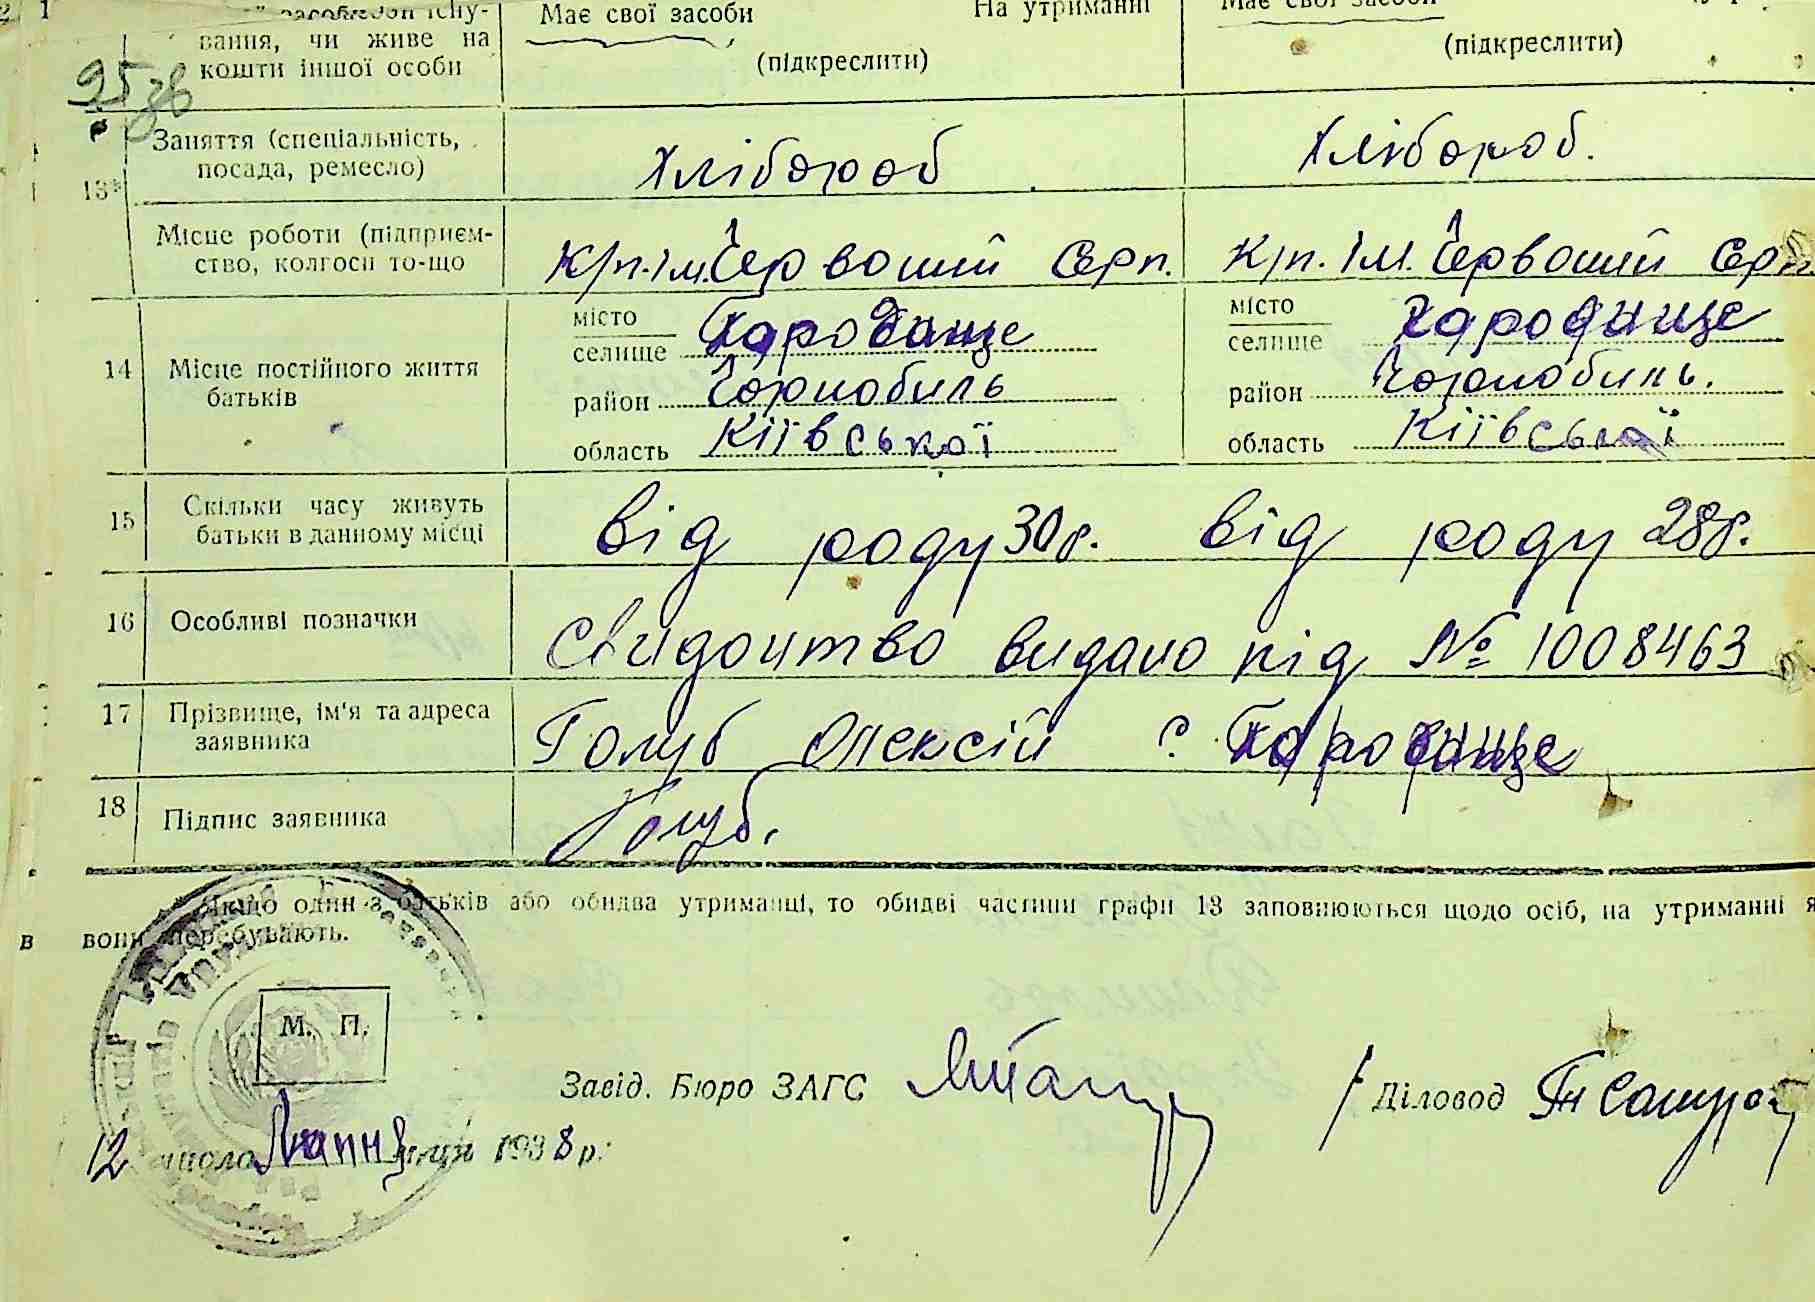 вання, чи живе на
кошти іншої особи
Має свої засоби На утриманні
(підкреслити)
Має свої засоби
(підкреслити)
95 зв
13*
Заняття (спеціальність,
посада, ремесло)
Хлібороб
Хлібороб.
Місце роботи (підприєм-
ство, колгосп то-що
К/п. ім. Червоний Серп.
К/п. Ім. Червоний Серп
14
Місце постійного життя
батьків
місто
селище Городище
район Чорнобиль
область Київської
місто
селище Городище
район Чорнобиль.
область Київської
15
Скільки часу живуть
батьки в данному місці
від роду 30 р. від роду 28 р.
16 Особливі позначки
Свидоцтво видано під № 1008463
17
Прізвище, ім'я та адреса
заявника
Голуб Олексій с. Городище
18 Підпис заявника
Голуб.
Якщо один з батьків або обидва утриманці, то обидві частини графи 13 заповнюються щодо осіб, на утриманні я
в вони перебувають.
М. П.
Завід. Бюро ЗАГС
Діловод
12 число Липня місяця 1938 р.